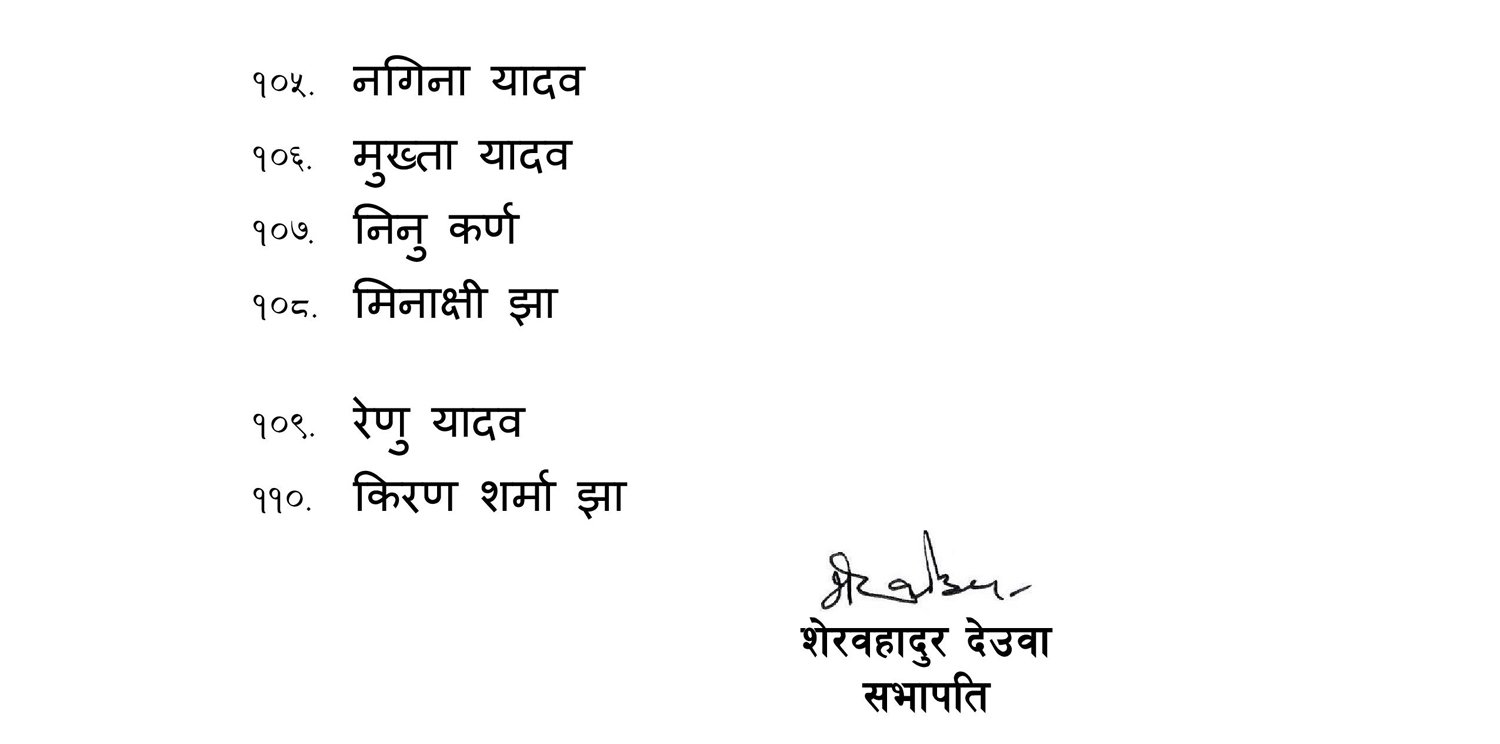 १०५. नगिना यादव
१०६. मुख्ता यादव
१०७. निनु कर्ण
१०८. मिनाक्षी झा
१०९. रेणु यादव
११०. किरण शर्मा झा
शेरवहादुर देउवा
सभापति